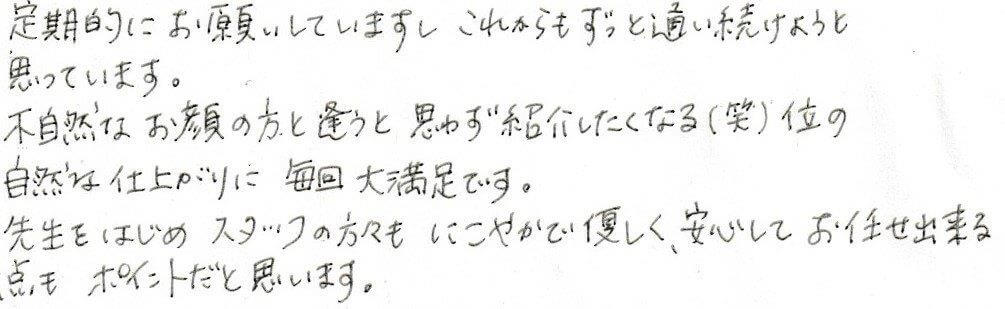 定期的にお願いしていますし これからもずっと通い続けようと
思っています。
不自然なお顔の方と逢うと 思わず紹介したくなる(笑)位の
自然な仕上がりに 毎回 大満足です。
先生をはじめ スタッフの方々も にこやかで優しく、安心して お任せ出来る
点も ポイントだと思います。